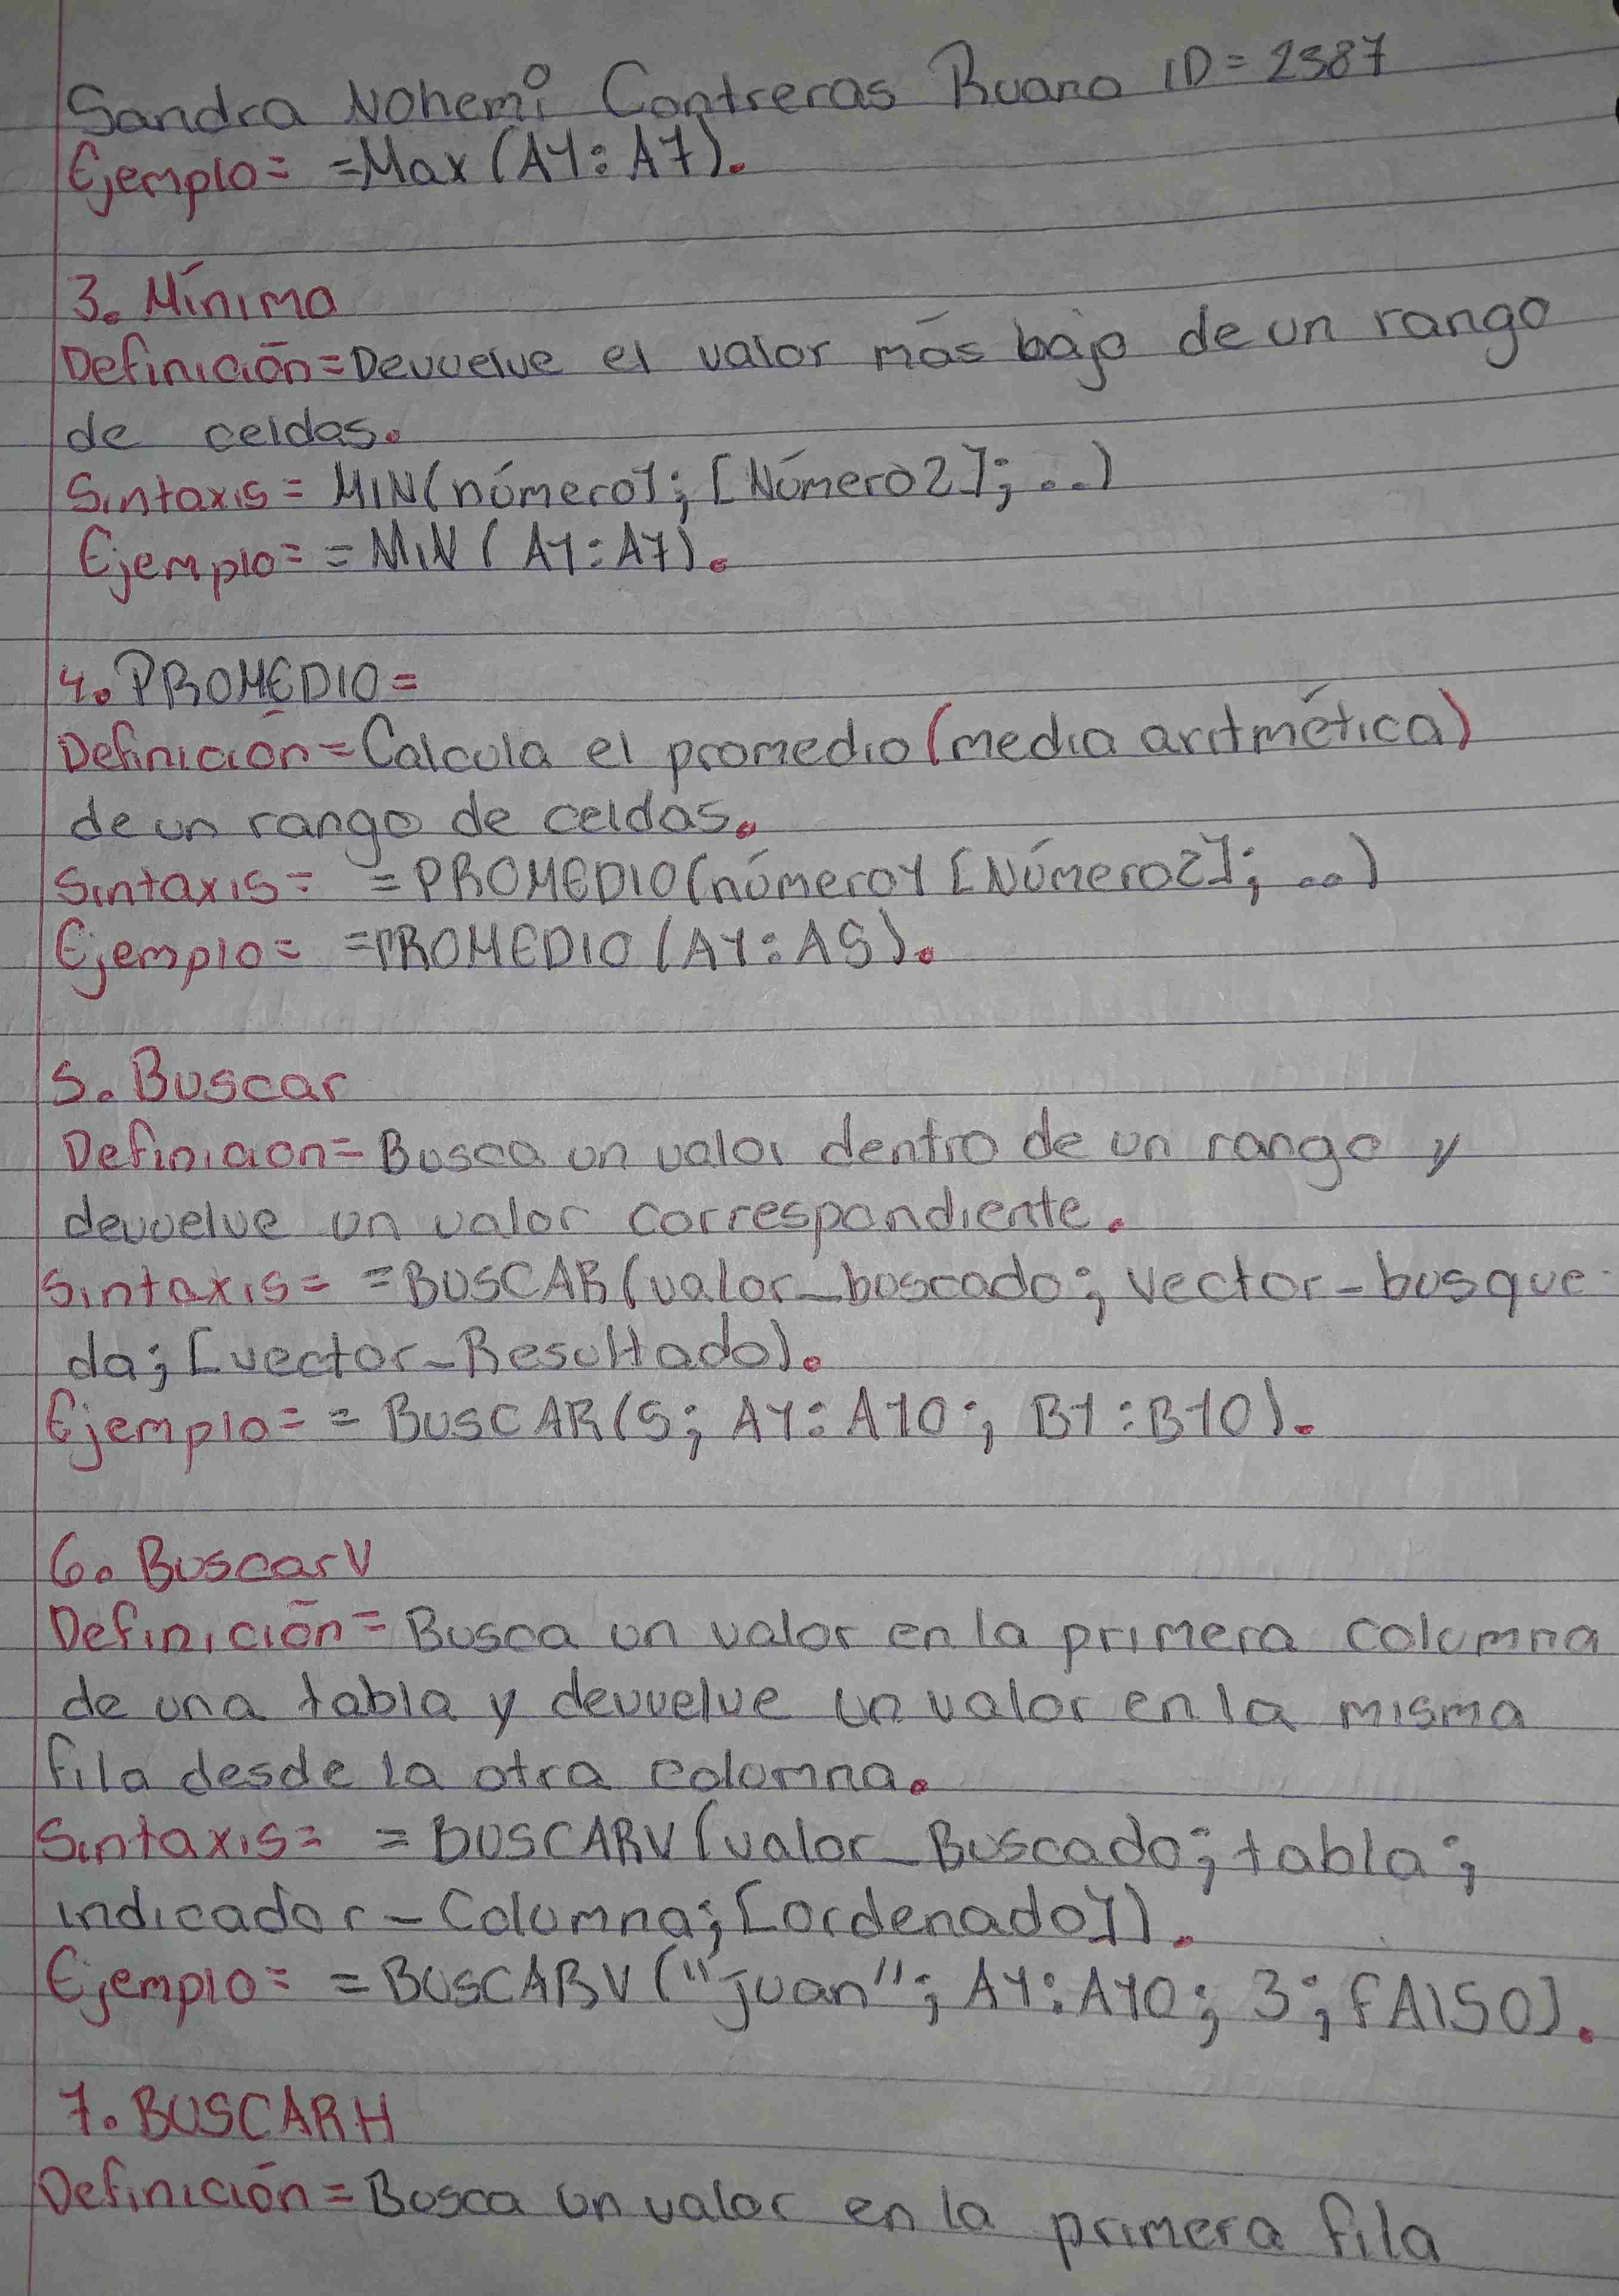 Sandra Nohemi Contreras Ruano ID = 2587
Ejemplo= =Max (A1:A7).
3. Mínimo
Definición= Devuelve el valor más bajo de un rango
de celdas.
Sintaxis = MIN(número1; [Número2]; ..)
Ejemplo= = MIN ( A1:A7).
4. PROMEDIO=
Definición= Calcula el promedio (media aritmética)
de un rango de celdas.
Sintaxis= =PROMEDIO(número1 [Número2]; ...)
Ejemplo= =PROMEDIO (A1:A5).
5. Buscar
Definicion= Busca un valor dentro de un rango y
devuelve un valor correspondiente.
Sintaxis= =BUSCAR(valor_buscado; vector-busque-
da; [vector-Resultado).
Ejemplo= = BUSCAR(5; A1:A10; B1:B10).
6. BuscarV
Definición= Busca un valor en la primera columna
de una tabla y devuelve un valor en la misma
fila desde la otra columna.
Sintaxis= =BUSCARV(valor_Buscado; tabla;
indicador-Columna; [ordenado]).
Ejemplo= =BUSCARV ("juan"; A1:A10; 3; fAlSO).
7. BUSCARH
Definición= Busca un valor en la primera fila